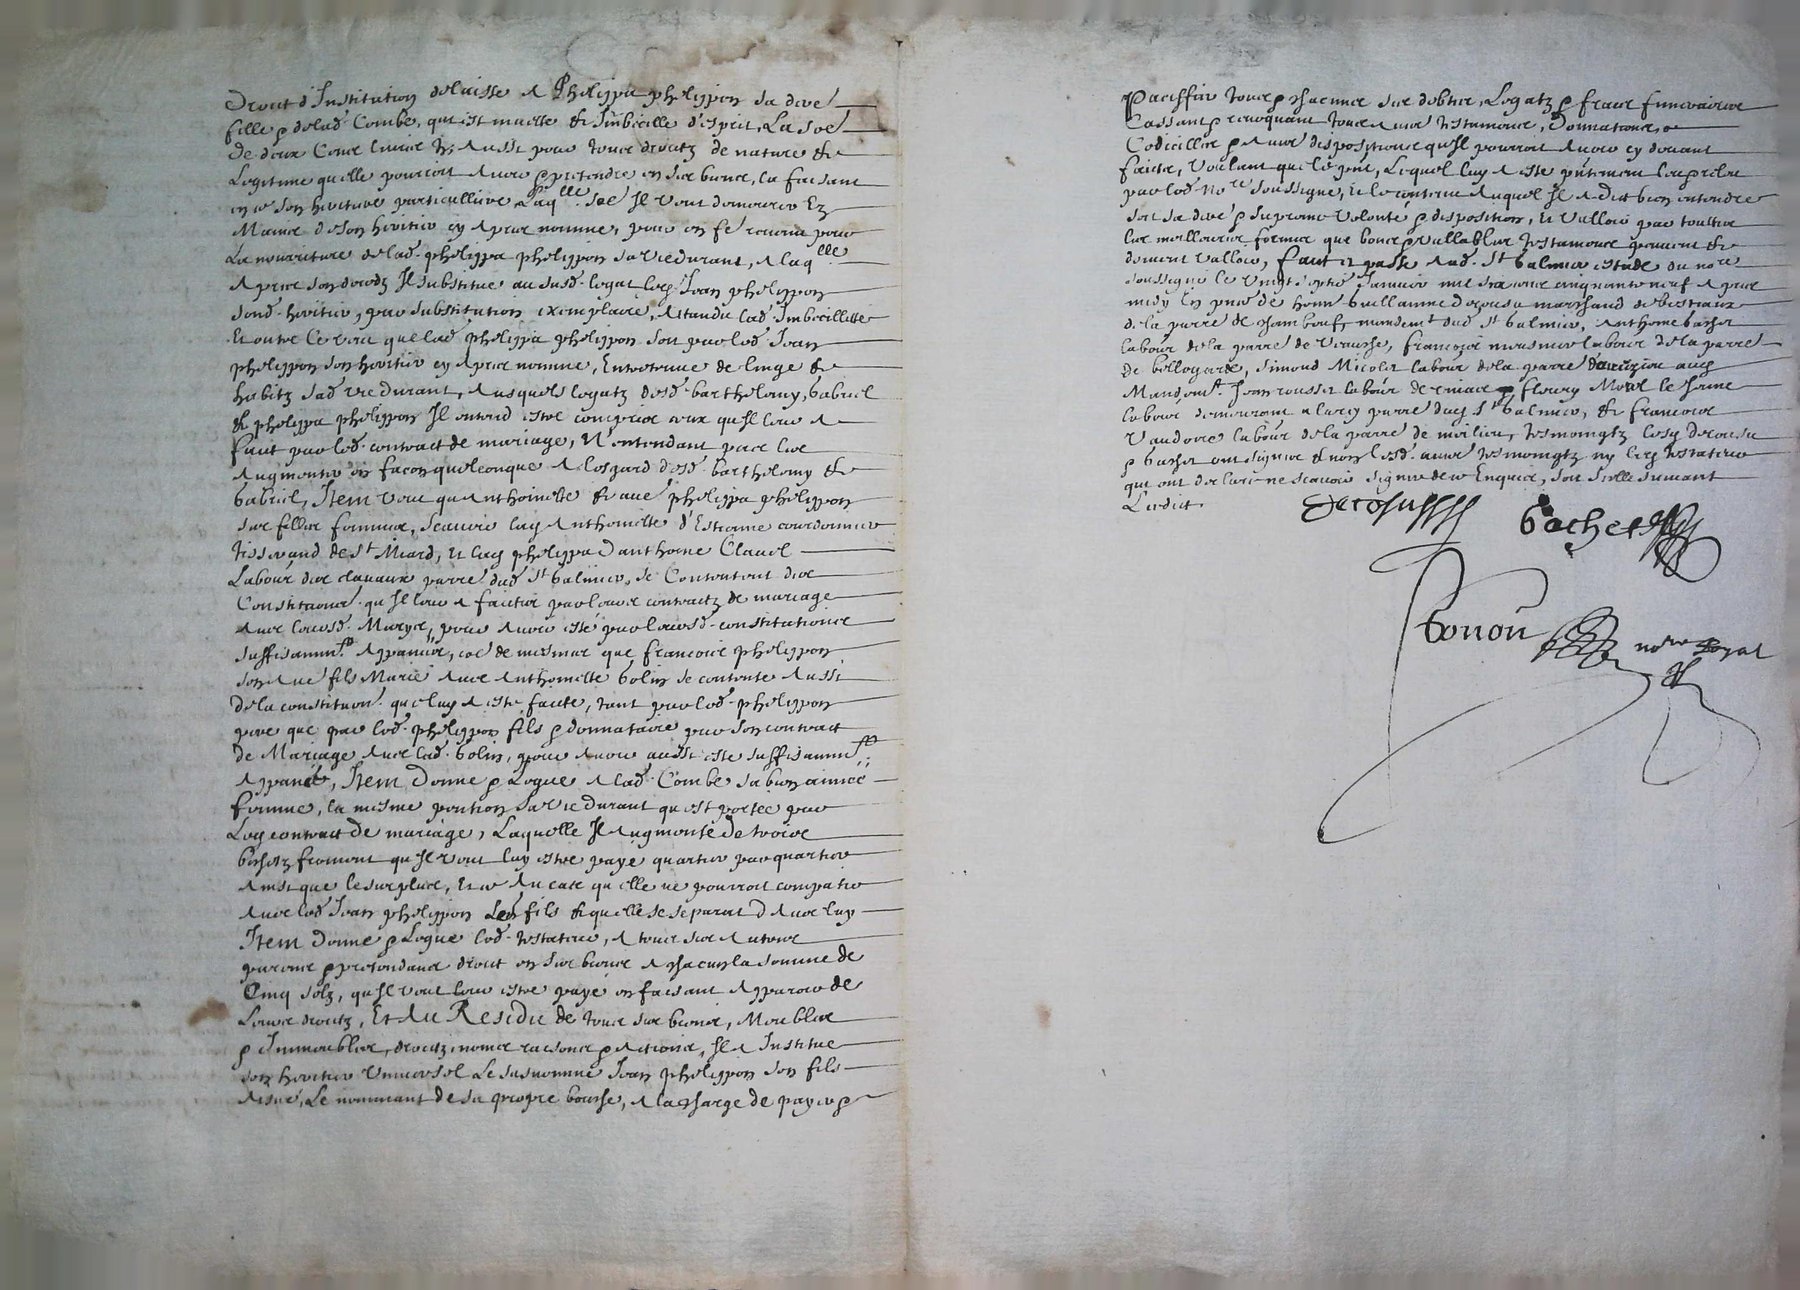 Droict d'Institution delaisse A Phelippa phelippon sa dicte
fille & de lad. Combe, qui est muette & Imbecille d'esprit, La so[e]
de deux Cens livres tz, Aussi pour tous droictz de nature &
Legitime quelle pourroit Avoir & pretendre en ses biens, la faisant
en ce son heritiere particulliere laqlle soe Il veut demeurer Ez
Mains de son heritier cy Apres nomme, pour en fe revenu pour
La nourriture de lad. phelippa phelippon sa vie durant, A laqlle
Apres son deceds Il substitue au susd. legat led. Jean phelippon
sond. heritier, par substitution exemplaire, Attandu lad. Imbecillitte
Et outre Ce veut que lad. phelippa phelippon soit par led. Jean
phelippon son heritier cy Apres nomme, Entretenue de linge &
habitz sad. vie durant, Ausquels legatz desd. barthelemy, Gabriel
& phelippa phelippon Il entend estre comprins ceux qu'Il leur A
faict par led. contract de mariage, N'entendant par ce les
Augmenter en facon quelconque A lesgard desd. barthelemy &
Gabriel, Item veut que Anthoinette & aue phelippa phelippon
ses filles femmes, Scauoir lad. Anthoinette d'Estienne courdonnier
tisserand de St Miard, et lad. phelippa d'anthoine Clauel
Labour. des clauaux parre dud. St Galmier, se Contentent des
Constitutions qu'Il leur A faictes par leurs contractz de mariage
Auec leursd. Marys, pour Auoir este par leursd. constitutions
suffisammt Appannes, coe de mesmes que Francois phelippon
son Aue fils Marie Auec Anthoinette Colin se contente Aussi
de la constituon. que luy A este faicte, tant par led. phelippon
pere que par led. phelippon fils & donnataire par son contract
de Mariage Auec lad. Colin, pour Auoir aussi este suffisammt
Appane, Item Donne & Legue A lad. Combe sa bien aimee
femme, la mesme pention sa vie durant qu'est portee par
Led. contract de mariage, Laquelle Il Augmente de trois
bichetz froment qu'Il veut luy estre paye quartier par quartier
Ainsi que le surplus, Et ce Au cas qu'elle ne pourroit compatir
Auec led. Jean phelippon Led. fils & quelle se separat d'Auec luy
Item Donne & Legue led. testateur, A tous ses Autres
parens & pretendans droict en ses biens A chacun la somme de
Cinq solz, qu'Il veut leur estre paye en faisant Apparoir de
Leurs droictz, Et Au Residu de tous ses biens, Meubles
& Immeubles, droictz, noms raisons & Actions, Il A Institue
son heritier Universel Le susnomme Jean phelippon son fils
Aisne, Le nommant de sa propre bouche, A la charge de payer &
Paciffier tous & chacuns ses debtes, Legatz & fraix funeraires
Cassant & reuoquant tous Autres testamens, Donnations
Codicilles & Autres dispositions qu'Il pourroit Auoir cy deuant
faictes, Voulant que le pnt, Lequel luy A este pntement leu & releu
par led. Nore soussigne, et le contenu Auquel Il A dict bien entendre
soit sa dre & supreme Volonte & disposition, et Valloir par touttes
les meilleures formes que bons & vallables testamens peuuent &
doiuent valloir, faict et passe Aud. St Galmier estude du nore
soussigne le Vingt septie Januier mil six cens cinquante neuf Apres
midy En pnce de honn. Guillaume Decousu marchand de bestiaux
de la parre de chambeuf, mandemt dud. St Galmier, Anthoine Gachet
labour. de la parre de Veausse, francois mesmer labour. de la parre
de bellegarde, Simond Micolet labour. de la parre d'auizieu aud.
Mandemt. Jean rousset labour. de riuas & fleury Morel le Jeune
labour. demeurant A larcy parre dud. St Galmier, & francois
Vandoire labour. de la parre de meilieu, tesmoingtz lesd. decousu
& Gachet ont signe & non lesd. aues tesmoingtz ny led. testateur
qui ont declare ne scauoir signer de ce Enquis, soit scelle suiuant
L'edict
Decousu
Gachet
Bonon nore Royal